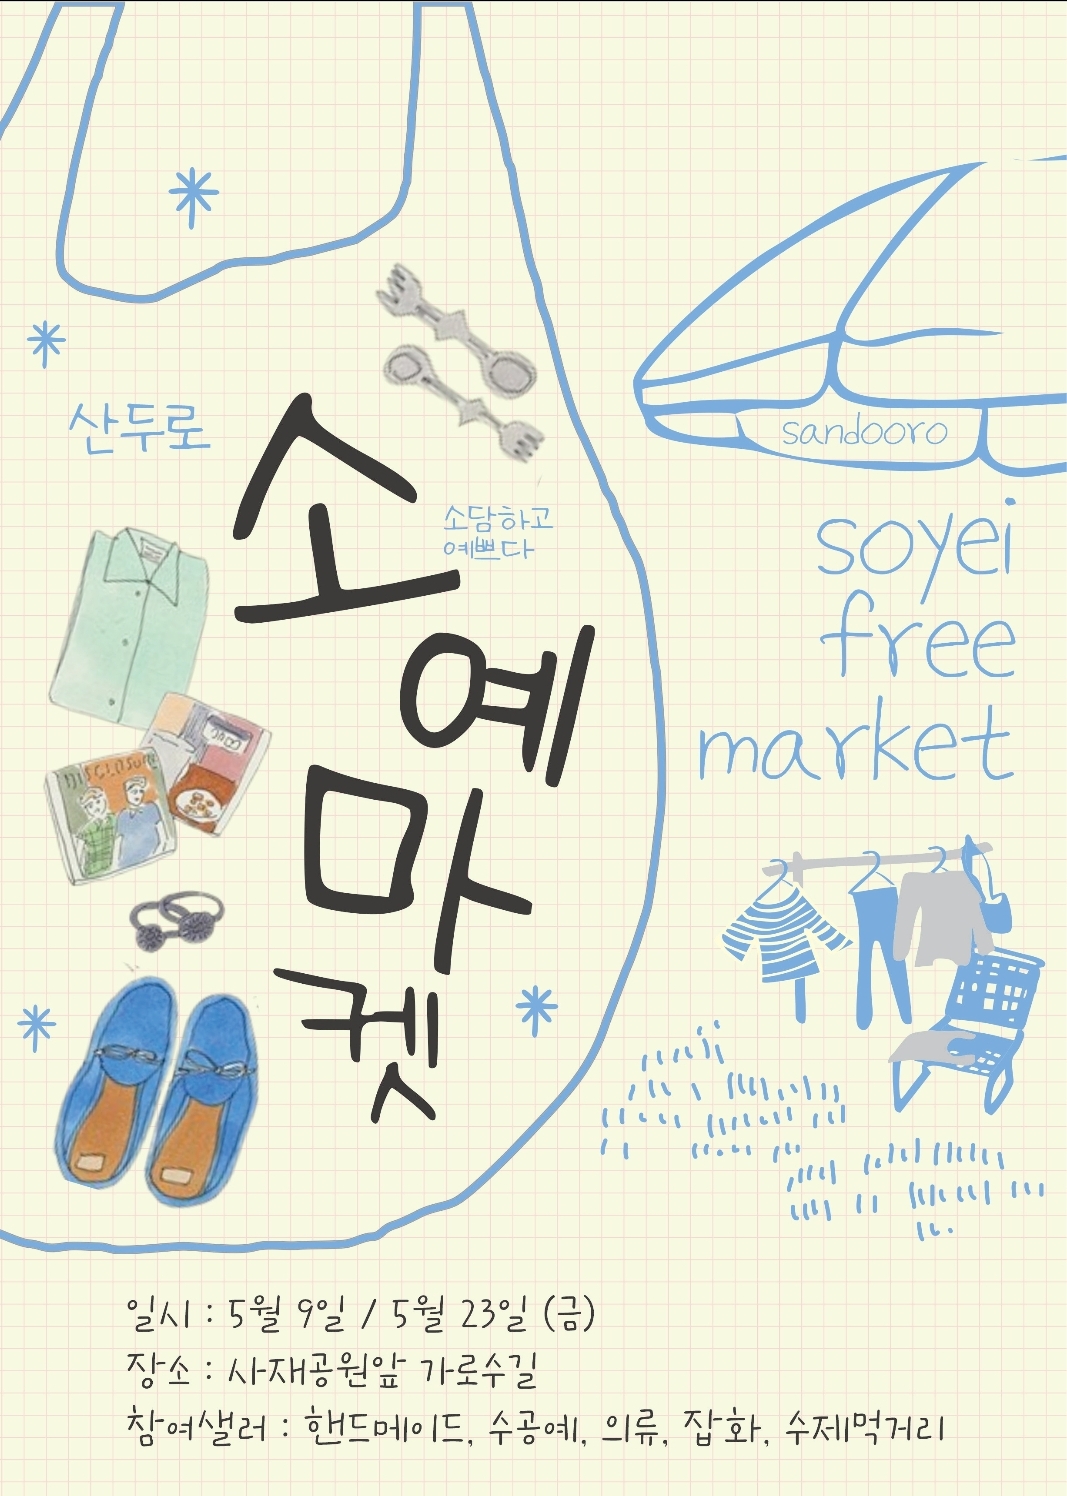 산두로
소예마켓
소담하고
예쁘다
sandooro
soyei
free
market
DISCLOSURE
일시 : 5월 9일 / 5월 23일 (금)
장소 : 사재공원앞 가로수길
참여샐러 : 핸드메이드, 수공예, 의류, 잡화, 수제먹거리